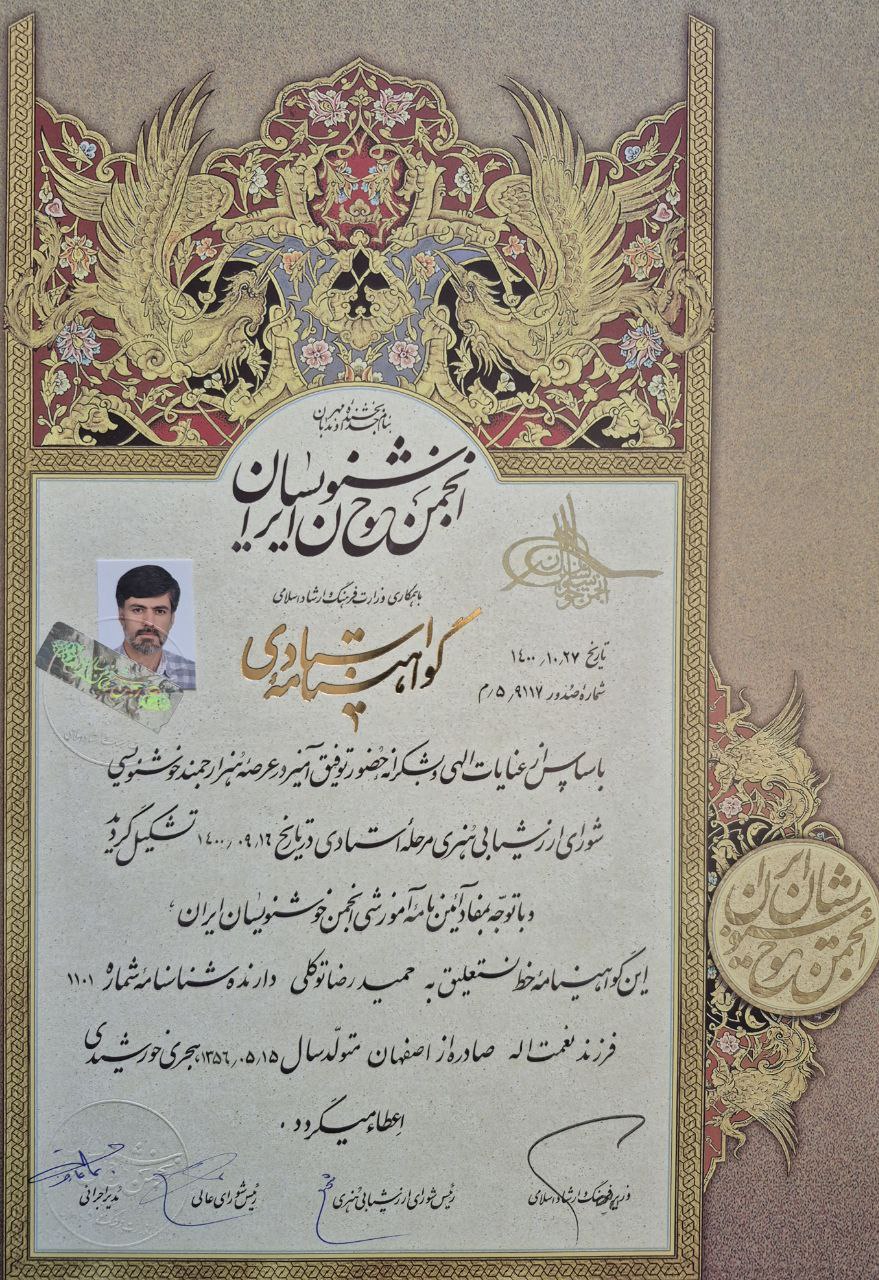 بنام خداوند بخشنده مهربان
انجمن خوشنویسان ایران
انجمن خوشنویسان ایران
با همکاری وزارت فرهنگ و ارشاد اسلامی
گواهینامهٔ استادی
تاریخ ۱۴۰۰٫۱۰٫۲۷
شمارهٔ صدور ۵٫۹۱۱۷٫م
با سپاس از عنایات الهی و بشکرانه حضور توفیق آمیز در عرصهٔ هنر ارجمند خوشنویسی
شورای ارزشیابی هنری مرحلهٔ استادی در تاریخ ۱۴۰۰٫۰۹٫۱۶ تشکیل گردید
و با توجّه بمفاد آئین نامهٔ آموزشی انجمن خوشنویسان ایران،
این گواهینامهٔ خط نستعلیق به حمید رضا توکلی دارنده شناسنامهٔ شماره ۱۱۰۱
فرزند نعمت اله صادره از اصفهان متولّد سال ۱۳۵۶٫۰۵٫۱۵ هجری خورشیدی
اعطاء میگردد.
وزیر فرهنگ و ارشاد اسلامی
رئیس شورای ارزشیابی هنری
رئیس شورای عالی
مُدیر اجرائی
انجمن خوشنویسان ایران